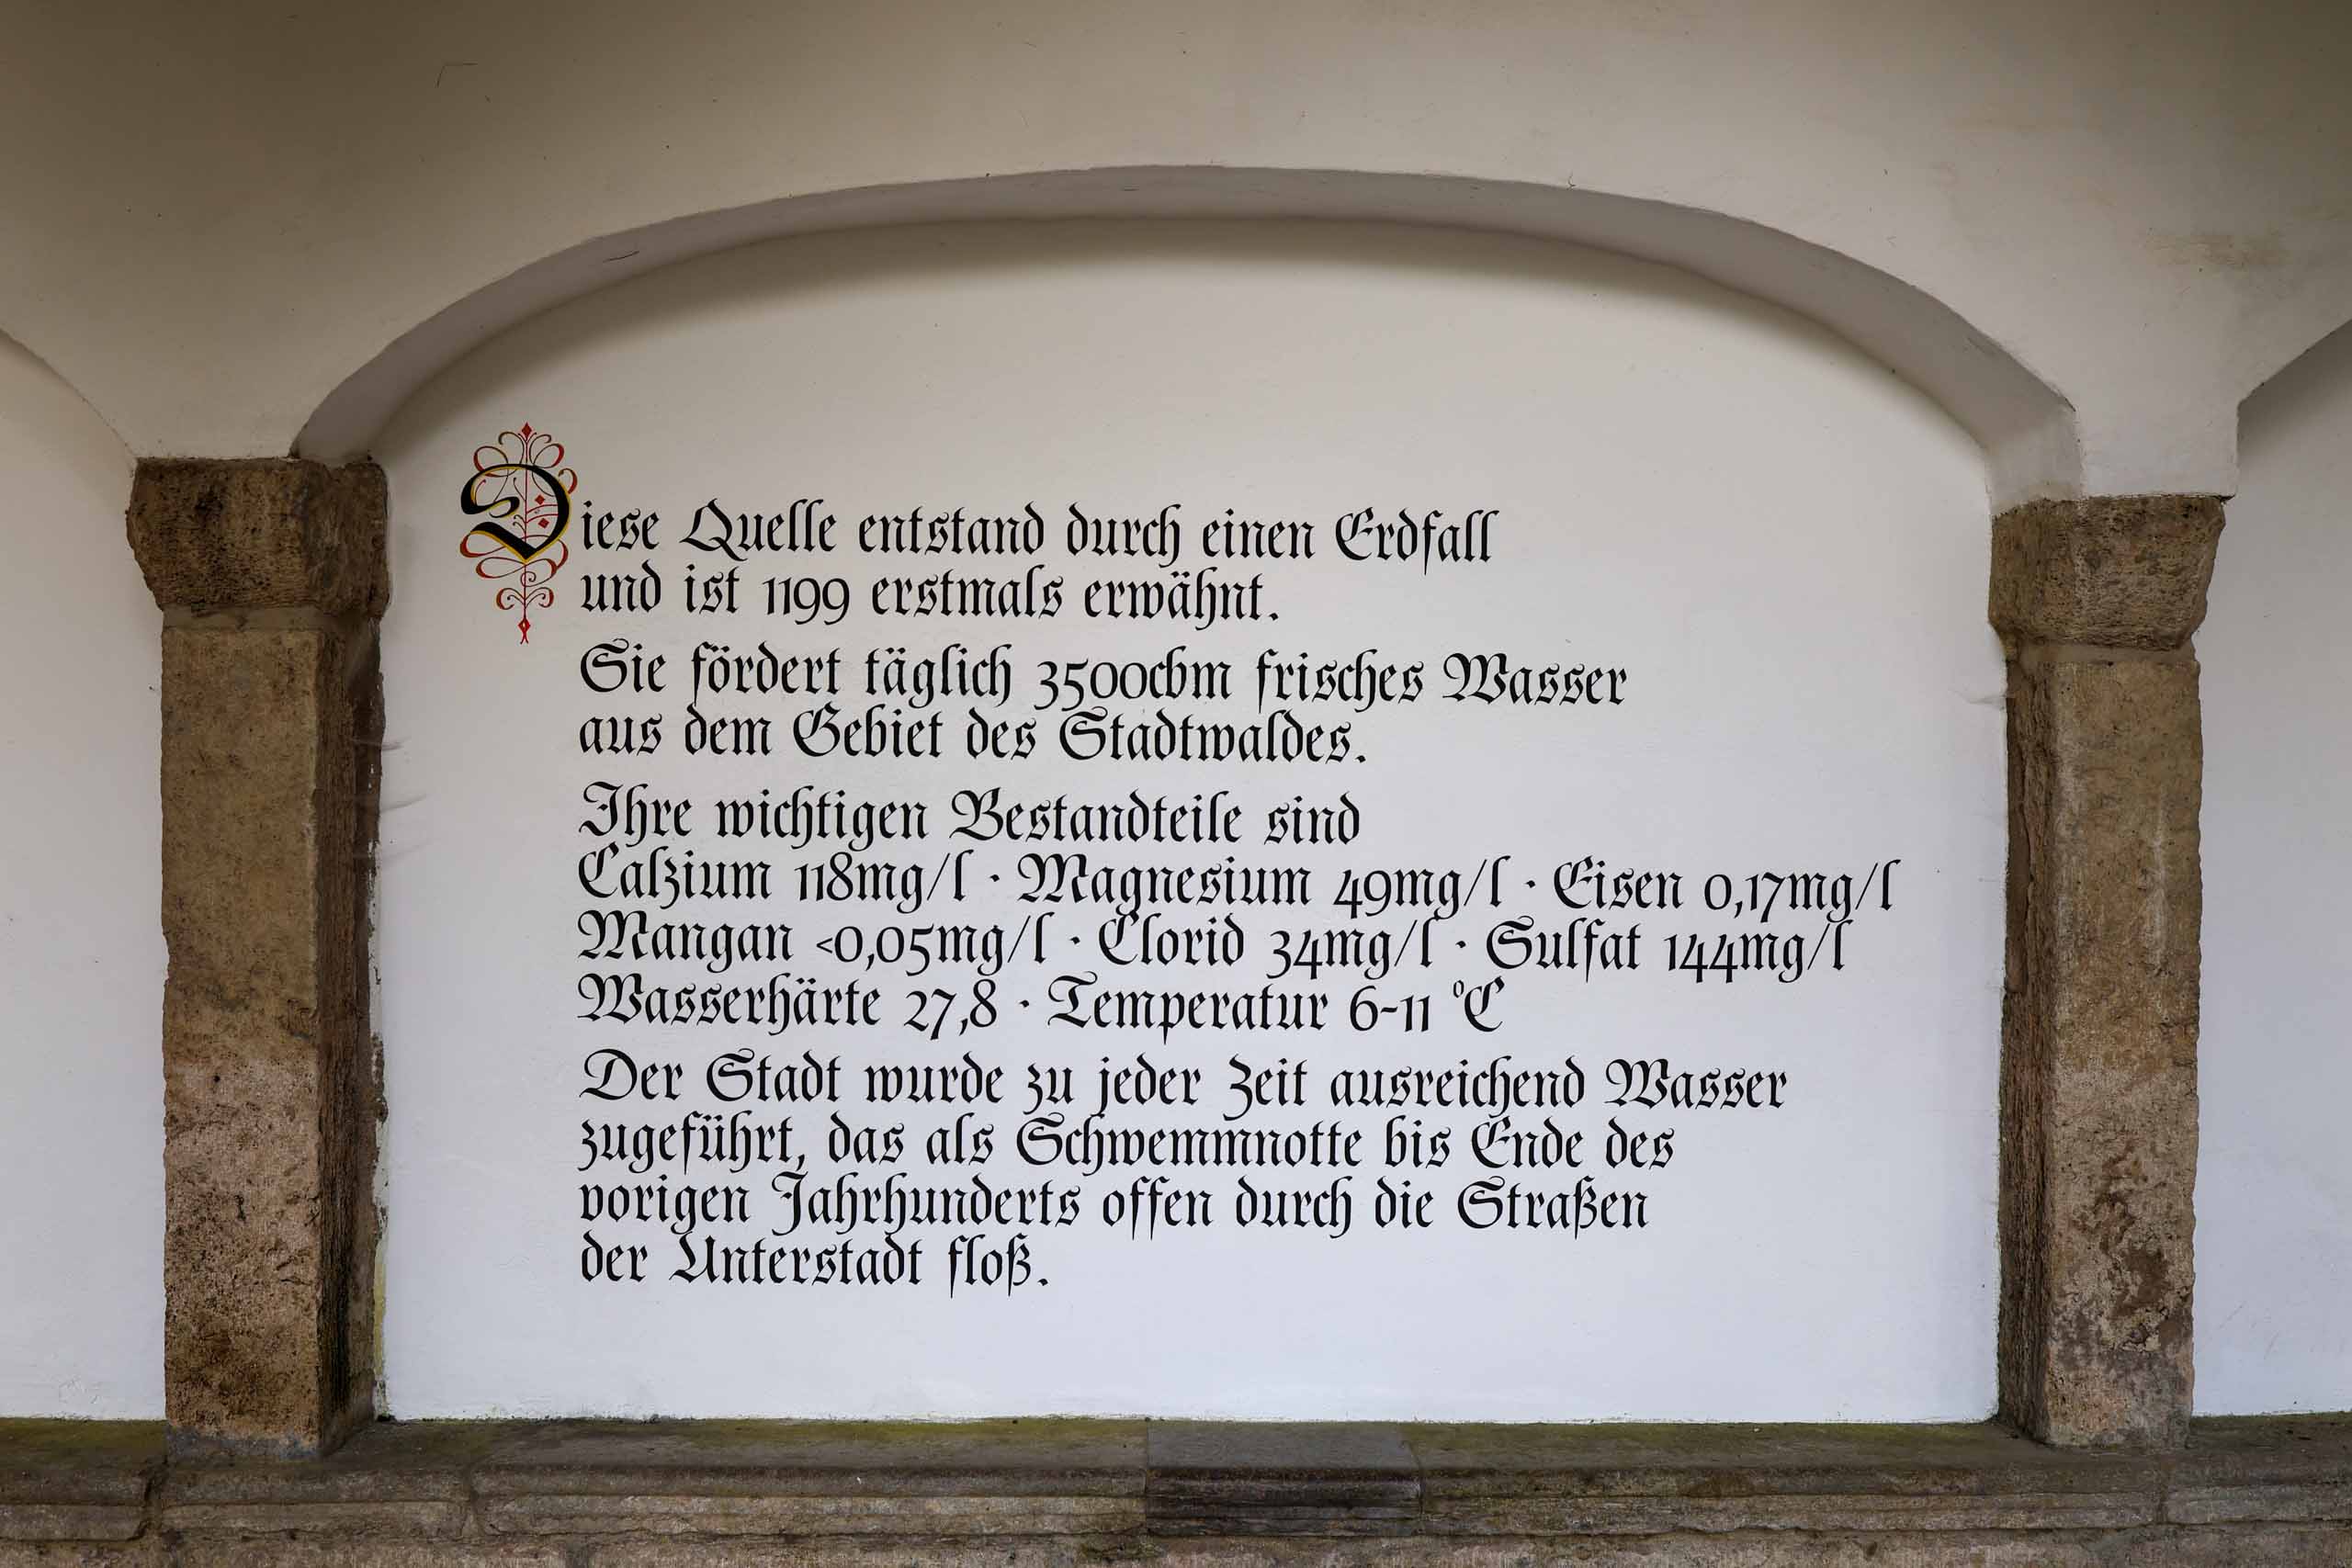 Diese Quelle entstand durch einen Erdfall
und ist 1199 erstmals erwähnt.
Sie fördert täglich 3500cbm frisches Wasser
aus dem Gebiet des Stadtwaldes.
Ihre wichtigen Bestandteile sind
Calzium 118mg/l · Magnesium 49mg/l · Eisen 0,17mg/l
Mangan <0,05mg/l · Clorid 34mg/l · Sulfat 144mg/l
Wasserhärte 27,8 · Temperatur 6-11 °C
Der Stadt wurde zu jeder Zeit ausreichend Wasser
zugeführt, das als Schwemmnotte bis Ende des
vorigen Jahrhunderts offen durch die Straßen
der Unterstadt floß.